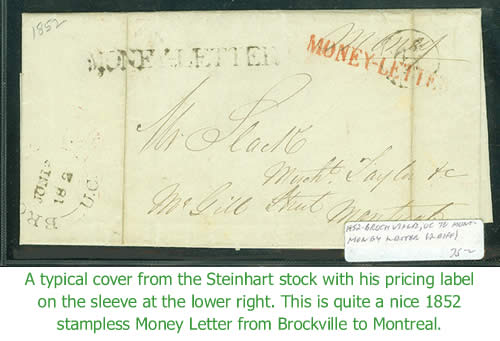 1852
Money
MONEY-LETTER
MONEY-LETTE
Mr Slack
Taylor & c
Mc Gill Street
Montreal
BR
JUN
U.C.
1852-BROCKVILLE, UC TO MONT-
MONEY LETTER (2 DIFF)
75-
A typical cover from the Steinhart stock with his pricing label
on the sleeve at the lower right. This is quite a nice 1852
stampless Money Letter from Brockville to Montreal.